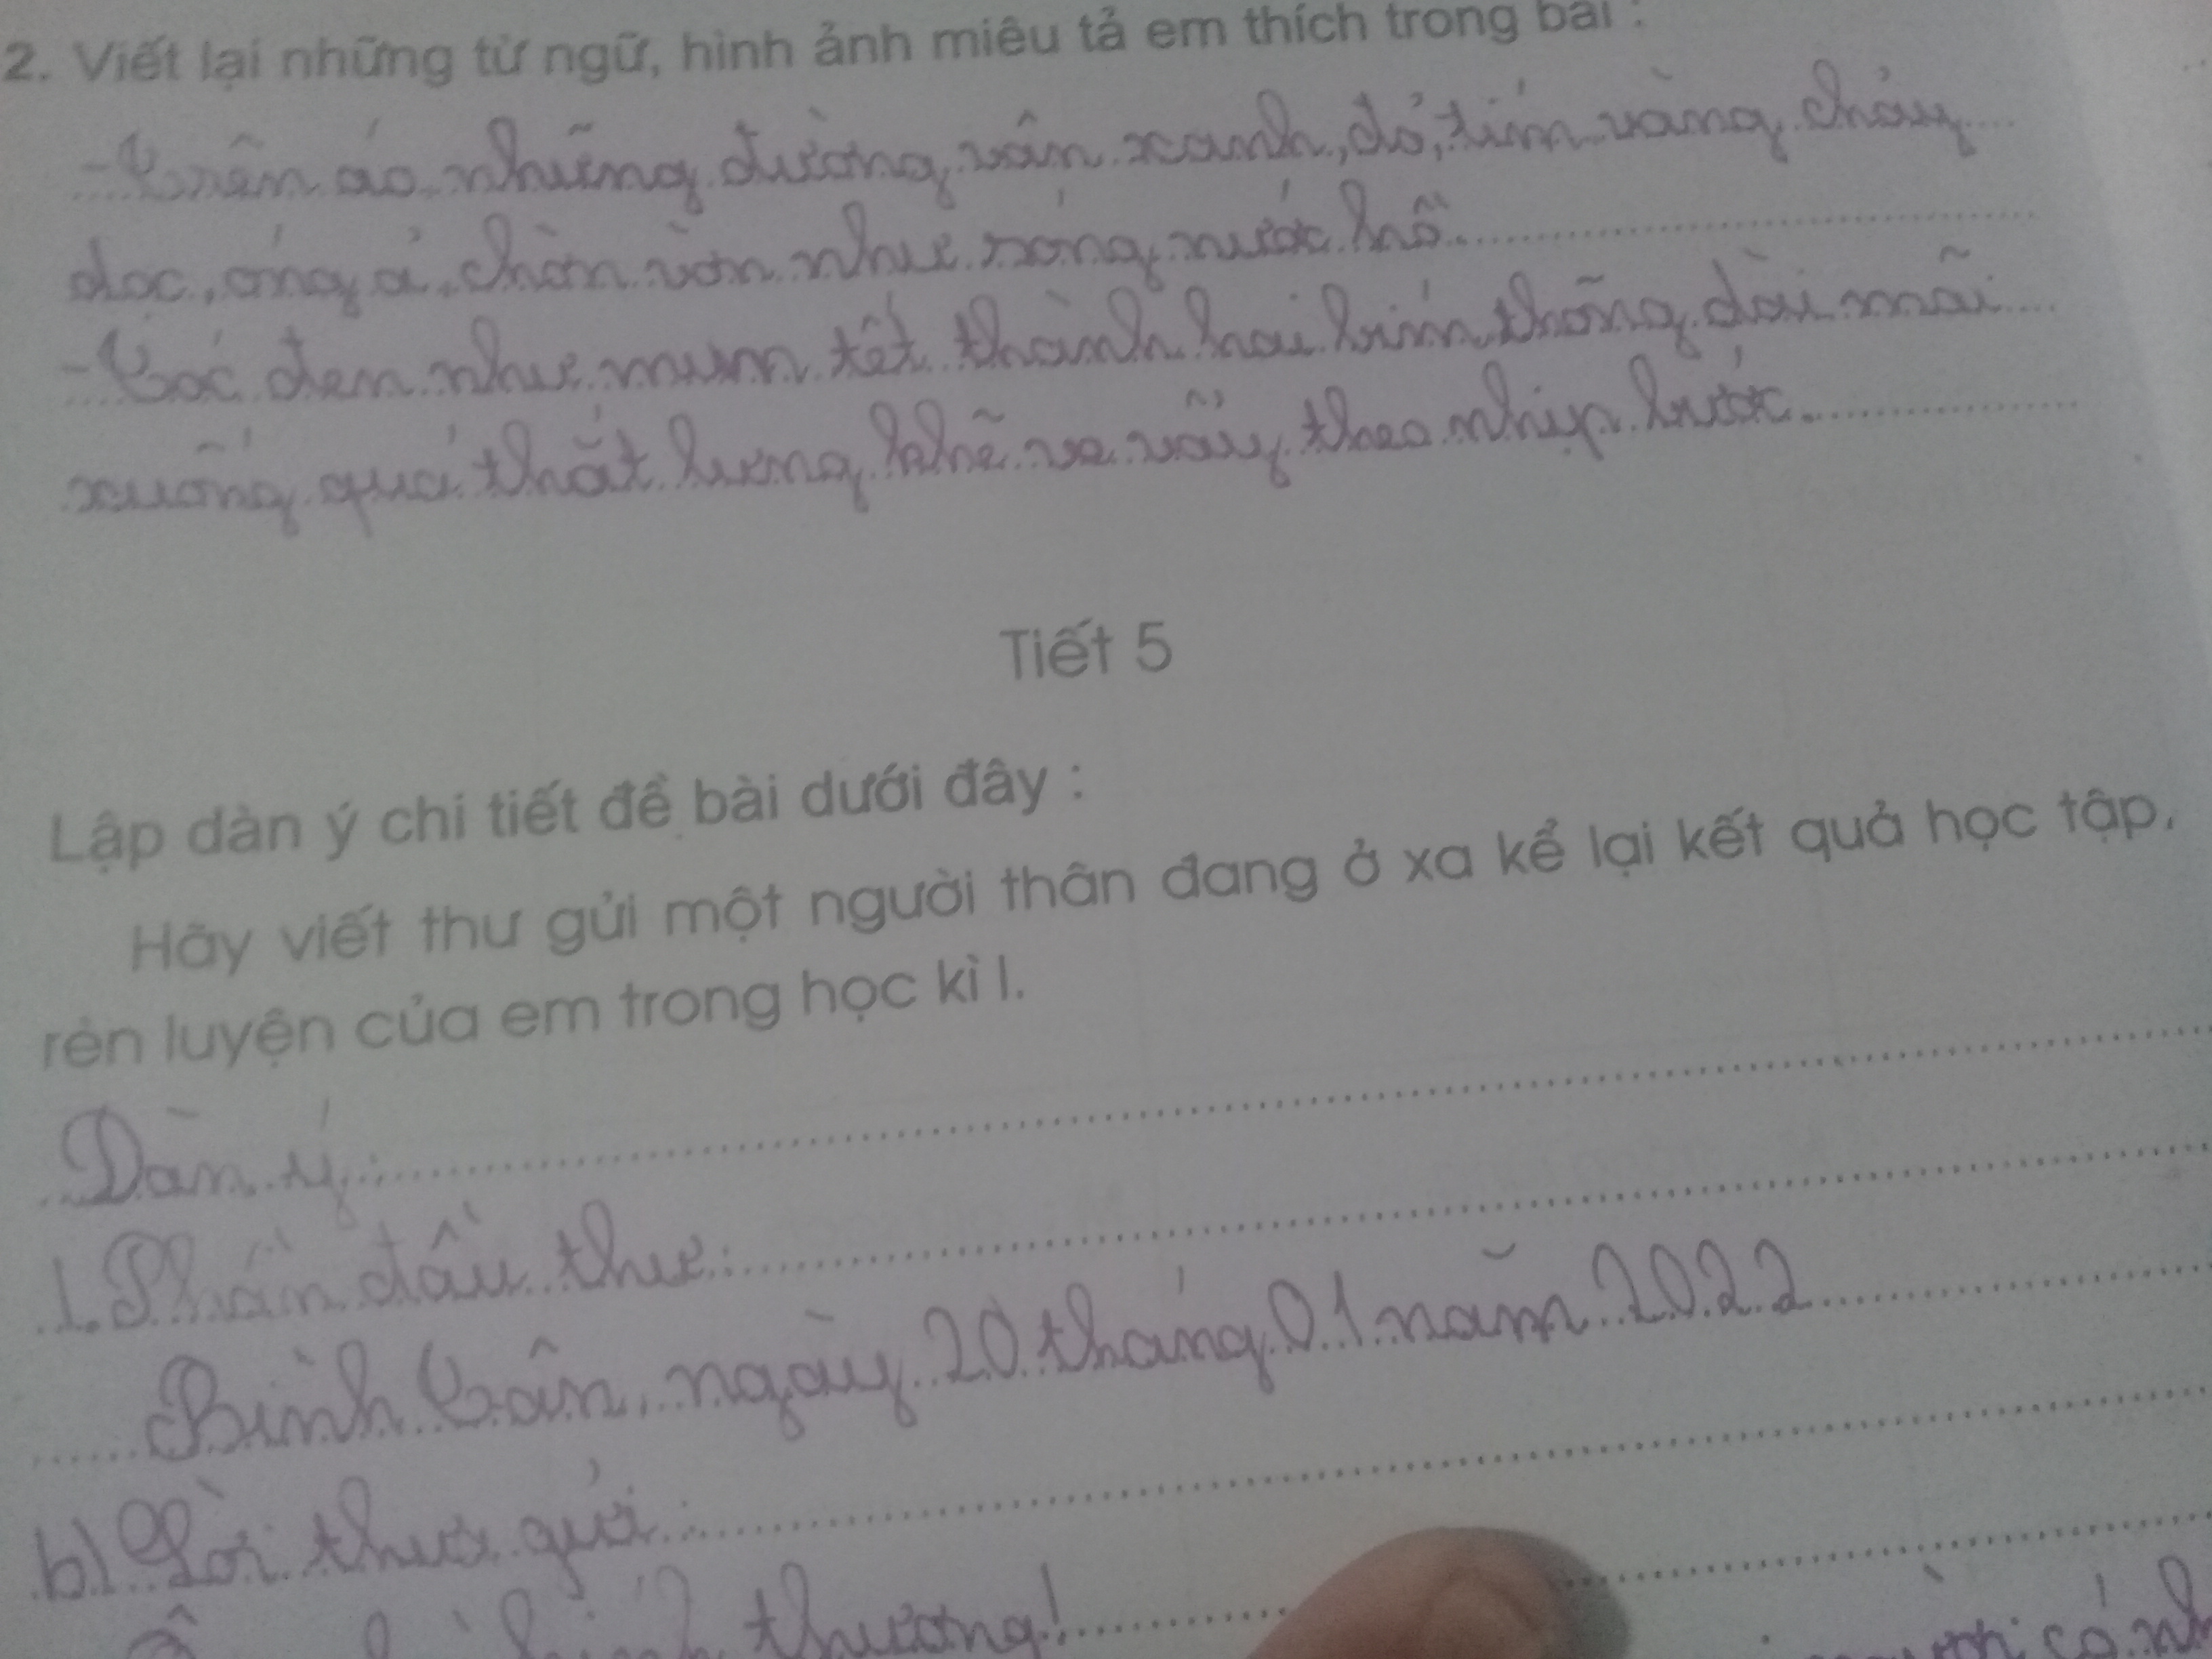 2. Viết lại những từ ngữ, hình ảnh miêu tả em thích trong bài :
- Trên áo những đường vân xanh, đỏ, tím vàng chảy
dọc, óng ả, chờn vờn như sóng nước hồ
- Tóc đen như mun tết thành hai bím thõng dài mãi
xuống quá thắt lưng khẽ ve vẩy theo nhịp bước.
Tiết 5
Lập dàn ý chi tiết đề bài dưới đây :
Hãy viết thư gửi một người thân đang ở xa kể lại kết quả học tập,
rèn luyện của em trong học kì I.
Dàn ý:
1. Phần đầu thư:
Bình Tân, ngày 20 tháng 01 năm 2022
b) Lời thưa gửi:
thương!
có